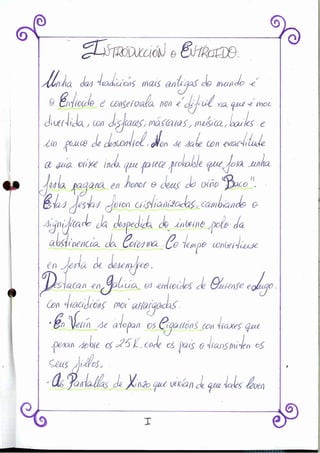 INTRODUCCIÓN o ENTROIDO.
Unha das tradicións mais antigas do mundo é
o Entroido e conservala non é difícil xa que é moi
divertida, con disfraces, máscaras, música, bailes e
un pouco de descontrol. Non se sabe con exactitude
a súa orixe inda que parece probable que fora unha
festa pagana en honor o deus do viño "Baco".
Estas festas foron cristianizadas, cambiando o
significado da despedida do inverno polo da
abstinencia da Coresma. Co tempo convertiuse
en festa de desenfreo.
Destacan en Galicia, os entroidos de Ourense e Lugo.
Con tradicións moi arraigadas.
·En Verín se atopan os Cigarróns con traxes que
pesan sobre os 25 K. onde os pais o transmiten os
seus fillos.
-As Pantallas de Xinzo que vixían de que todos leven
I